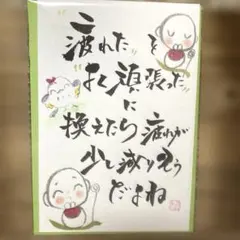 "疲れた"を
"よく頑張った"
に
換えたら疲れが
少し減りそう
だよね